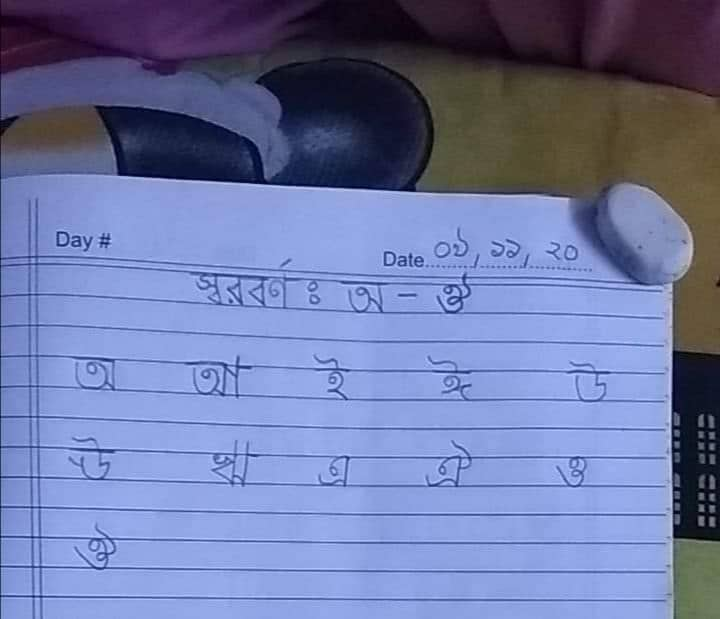 Day #
Date ০১, ১১, ২০
স্বরবর্ণ ঃ অ - ঔ
অ আ ই ঈ উ
ঊ ঋ এ ঐ ও
ঔ